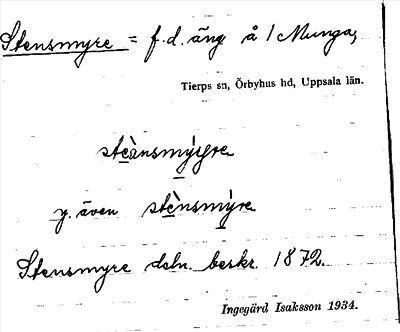 Stensmyre = f.d. äng å Munga,
Tierps sn, Örbyhus hd, Uppsala län.
y. även stènsmýre
Stensmyre deln. beskr. 1872.
Ingegärd Isaksson 1934.